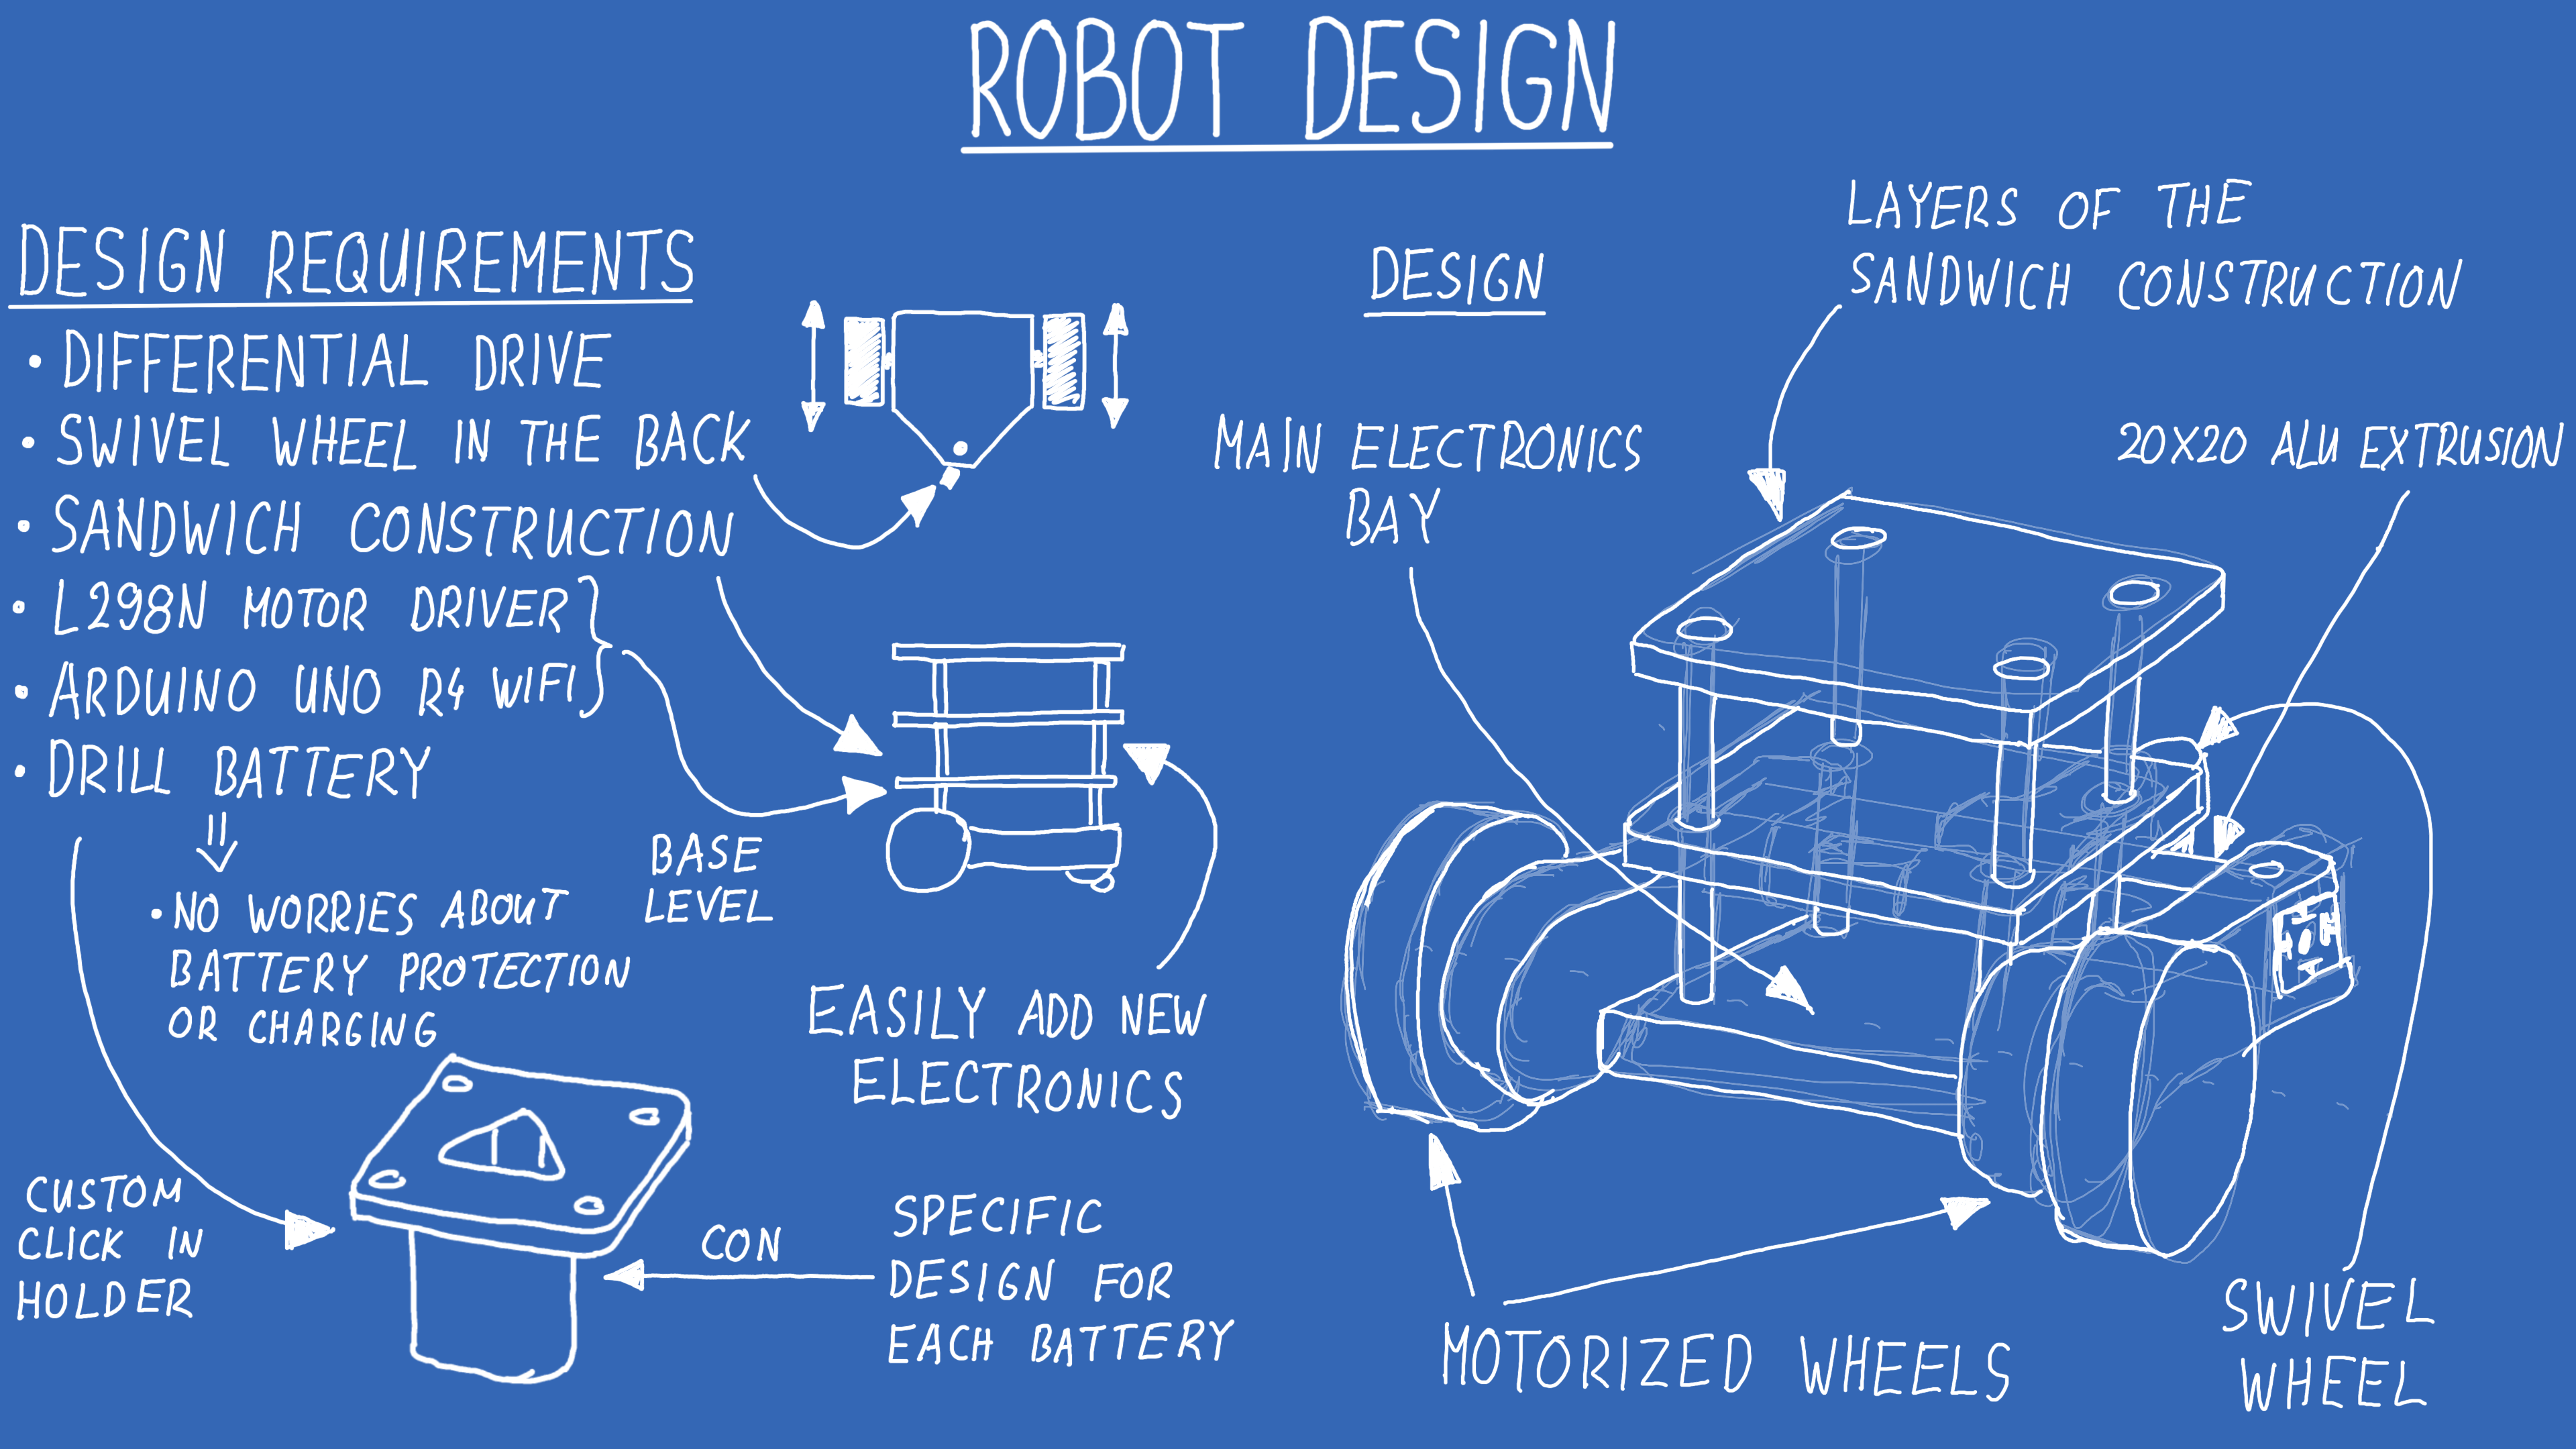 ROBOT DESIGN
DESIGN REQUIREMENTS
• DIFFERENTIAL DRIVE
• SWIVEL WHEEL IN THE BACK
• SANDWICH CONSTRUCTION
• L298N MOTOR DRIVER
• ARDUINO UNO R4 WIFI
• DRILL BATTERY
• NO WORRIES ABOUT
BATTERY PROTECTION
OR CHARGING
CUSTOM
CLICK IN
HOLDER
BASE
LEVEL
EASILY ADD NEW
ELECTRONICS
CON
SPECIFIC
DESIGN FOR
EACH BATTERY
DESIGN
LAYERS OF THE
SANDWICH CONSTRUCTION
MAIN ELECTRONICS
BAY
20X20 ALU EXTRUSION
MOTORIZED WHEELS
SWIVEL
WHEEL